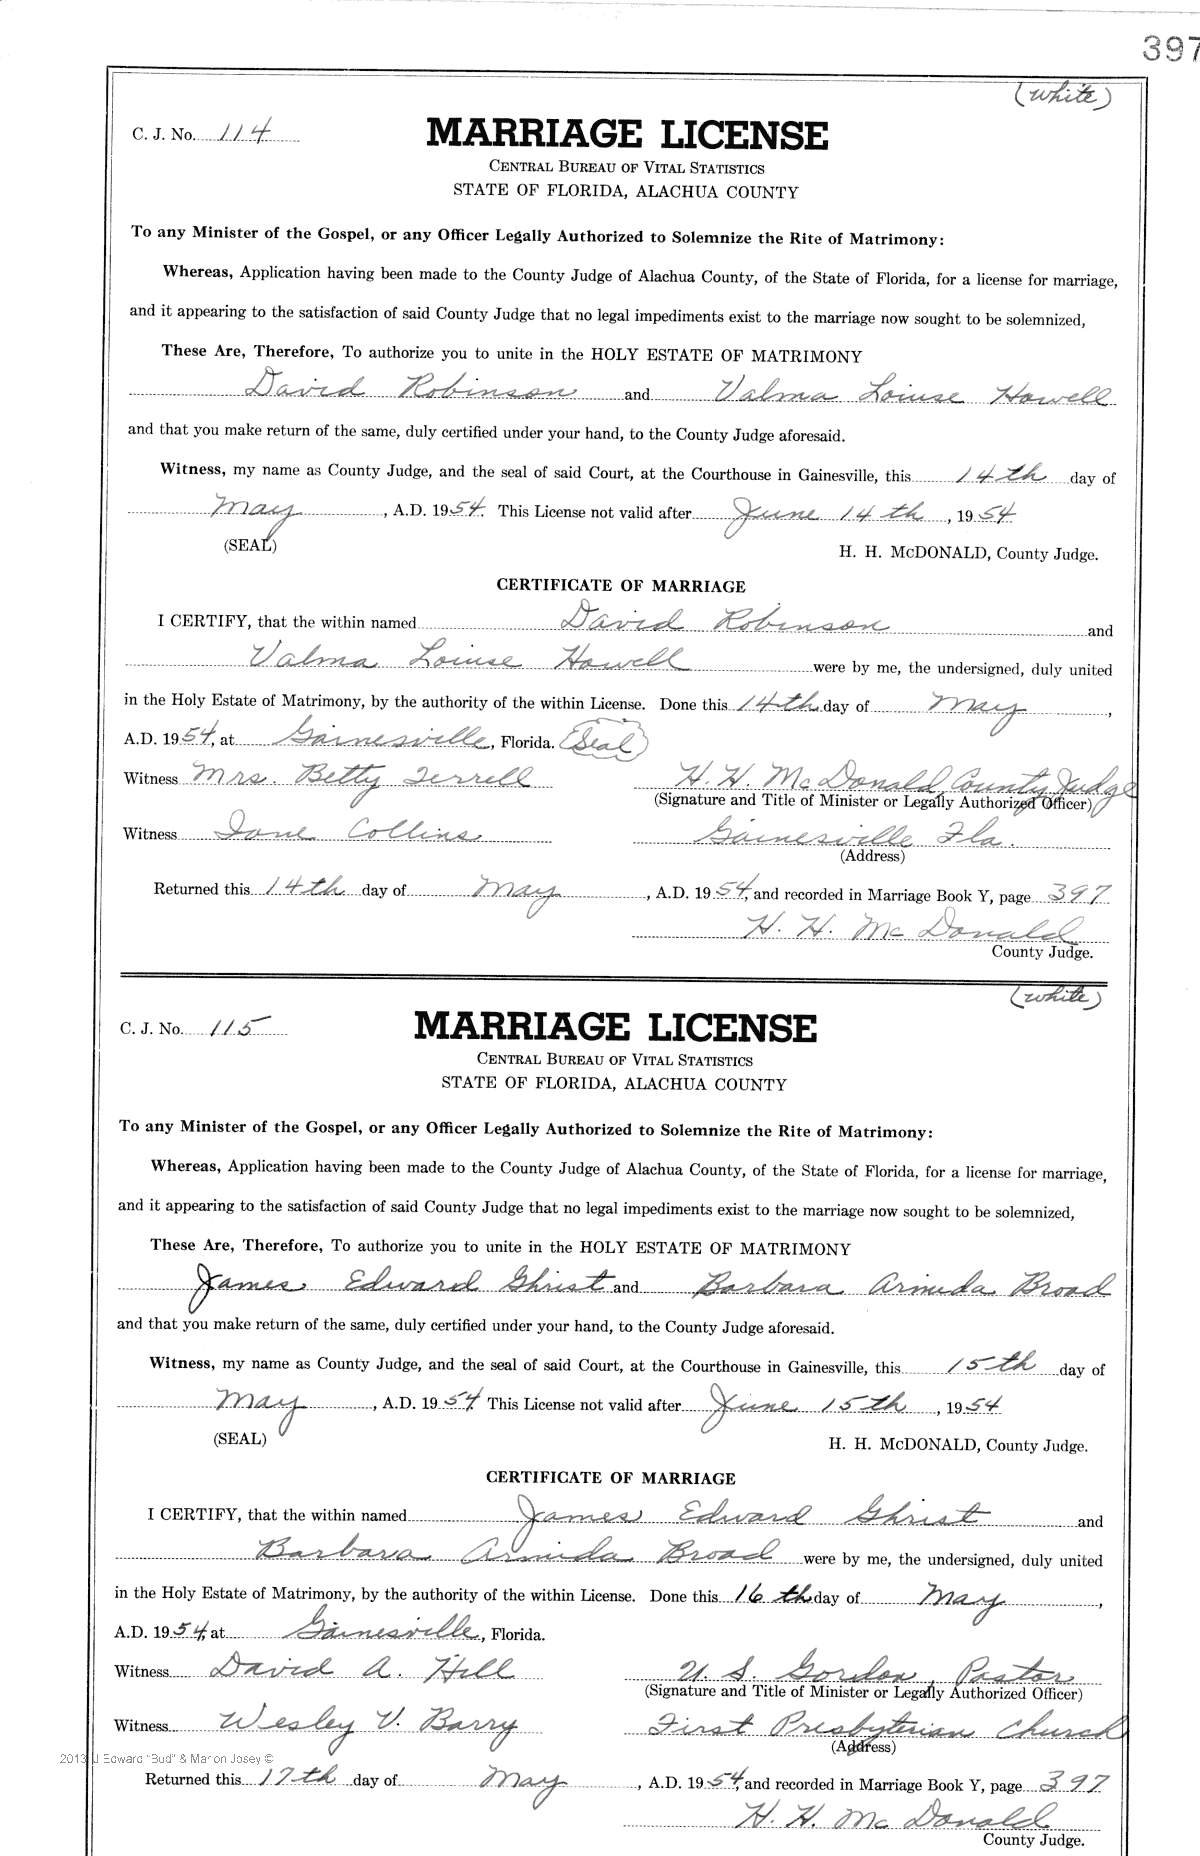 397
(White)
C. J. No. 114
MARRIAGE LICENSE
CENTRAL BUREAU OF VITAL STATISTICS
STATE OF FLORIDA, ALACHUA COUNTY
To any Minister of the Gospel, or any Officer Legally Authorized to Solemnize the Rite of Matrimony:
Whereas, Application having been made to the County Judge of Alachua County, of the State of Florida, for a license for marriage,
and it appearing to the satisfaction of said County Judge that no legal impediments exist to the marriage now sought to be solemnized,
These Are, Therefore, To authorize you to unite in the HOLY ESTATE OF MATRIMONY
David Robinson and Valma Louise Howell
and that you make return of the same, duly certified under your hand, to the County Judge aforesaid.
Witness, my name as County Judge, and the seal of said Court, at the Courthouse in Gainesville, this 14th day of
May, A.D. 1954. This License not valid after June 14th, 1954
(SEAL)
H. H. McDONALD, County Judge.
CERTIFICATE OF MARRIAGE
I CERTIFY, that the within named David Robinson and
Valma Louise Howell were by me, the undersigned, duly united
in the Holy Estate of Matrimony, by the authority of the within License. Done this 14th day of May,
A.D. 1954, at Gainesville, Florida. (Seal)
Witness Mrs. Betty Terrell H. H. McDonald, County Judge
(Signature and Title of Minister or Legally Authorized Officer)
Witness Ione Collins Gainesville Fla.
(Address)
Returned this 14th day of May, A.D. 1954, and recorded in Marriage Book Y, page 397
H. H. McDonald
County Judge.
(White)
C. J. No. 115
MARRIAGE LICENSE
CENTRAL BUREAU OF VITAL STATISTICS
STATE OF FLORIDA, ALACHUA COUNTY
To any Minister of the Gospel, or any Officer Legally Authorized to Solemnize the Rite of Matrimony:
Whereas, Application having been made to the County Judge of Alachua County, of the State of Florida, for a license for marriage,
and it appearing to the satisfaction of said County Judge that no legal impediments exist to the marriage now sought to be solemnized,
These Are, Therefore, To authorize you to unite in the HOLY ESTATE OF MATRIMONY
James Edward Ghrist and Barbara Armida Broad
and that you make return of the same, duly certified under your hand, to the County Judge aforesaid.
Witness, my name as County Judge, and the seal of said Court, at the Courthouse in Gainesville, this 15th day of
May, A.D. 1954. This License not valid after June 15th, 1954
(SEAL)
H. H. McDONALD, County Judge.
CERTIFICATE OF MARRIAGE
I CERTIFY, that the within named James Edward Ghrist and
Barbara Armida Broad were by me, the undersigned, duly united
in the Holy Estate of Matrimony, by the authority of the within License. Done this 16th day of May,
A.D. 1954, at Gainesville, Florida.
Witness David A. Hill U. S. Gordon, Pastor
(Signature and Title of Minister or Legally Authorized Officer)
Witness Wesley V. Barry First Presbyterian Church
(Address)
2013 J Edward "Bud" & Marion Josey ©
Returned this 17th day of May, A.D. 1954, and recorded in Marriage Book Y, page 397
H. H. McDonald
County Judge.